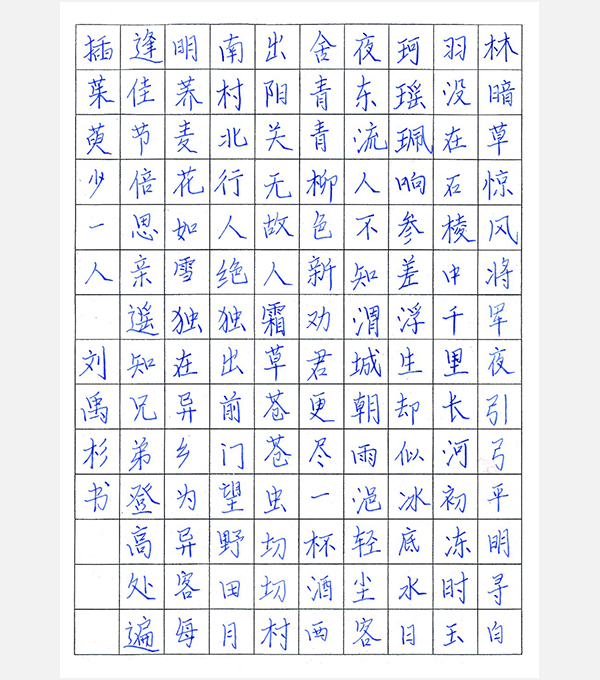 林暗草惊风将军夜引弓平明寻白
羽没在石棱中千里长河初冻时玉
珂瑶珮响参差浮生却似冰底水日
夜东流人不知渭城朝雨浥轻尘客
舍青青柳色新劝君更尽一杯酒西
出阳关无故人霜草苍苍虫切切村
南村北行人绝独出前门望野田月
明荞麦花如雪独在异乡为异客每
逢佳节倍思亲遥知兄弟登高处遍
插茱萸少一人 刘禹杉书